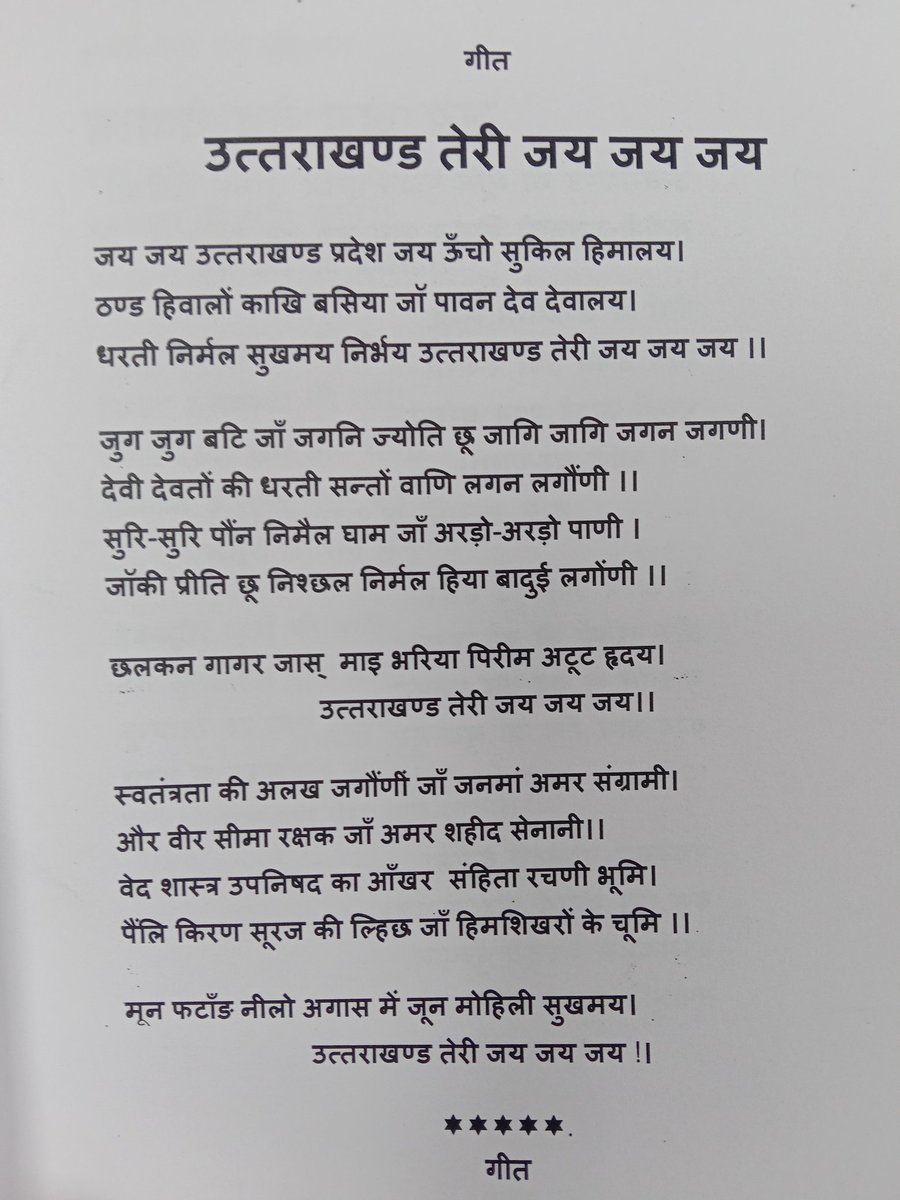 गीत
उत्तराखण्ड तेरी जय जय जय
जय जय उत्तराखण्ड प्रदेश जय ऊँचो सुकिल हिमालय।
ठण्ड हिवालों काखि बसिया जॉ पावन देव देवालय।
धरती निर्मल सुखमय निर्भय उत्तराखण्ड तेरी जय जय जय ।।
जुग जुग बटि जाँ जगनि ज्योति छू जागि जागि जगन जगणी।
देवी देवतों की धरती सन्तों वाणि लगन लगौंणी ।।
सुरि-सुरि पौंन निमैल घाम जाँ अरड़ो-अरड़ो पाणी ।
जॉकी प्रीति छू निश्छल निर्मल हिया बादुई लगोंणी ।।
छलकन गागर जास् माइ भरिया पिरीम अटूट हृदय।
उत्तराखण्ड तेरी जय जय जय।।
स्वतंत्रता की अलख जगौंणीं जाँ जनमां अमर संग्रामी।
और वीर सीमा रक्षक जाँ अमर शहीद सेनानी।।
वेद शास्त्र उपनिषद का आँखर संहिता रचणी भूमि।
पैंलि किरण सूरज की ल्हिछ जाँ हिमशिखरों के चूमि ।।
मून फटाँङ नीलो अगास में जून मोहिली सुखमय।
उत्तराखण्ड तेरी जय जय जय !।
✶✶✶✶✶.
गीत